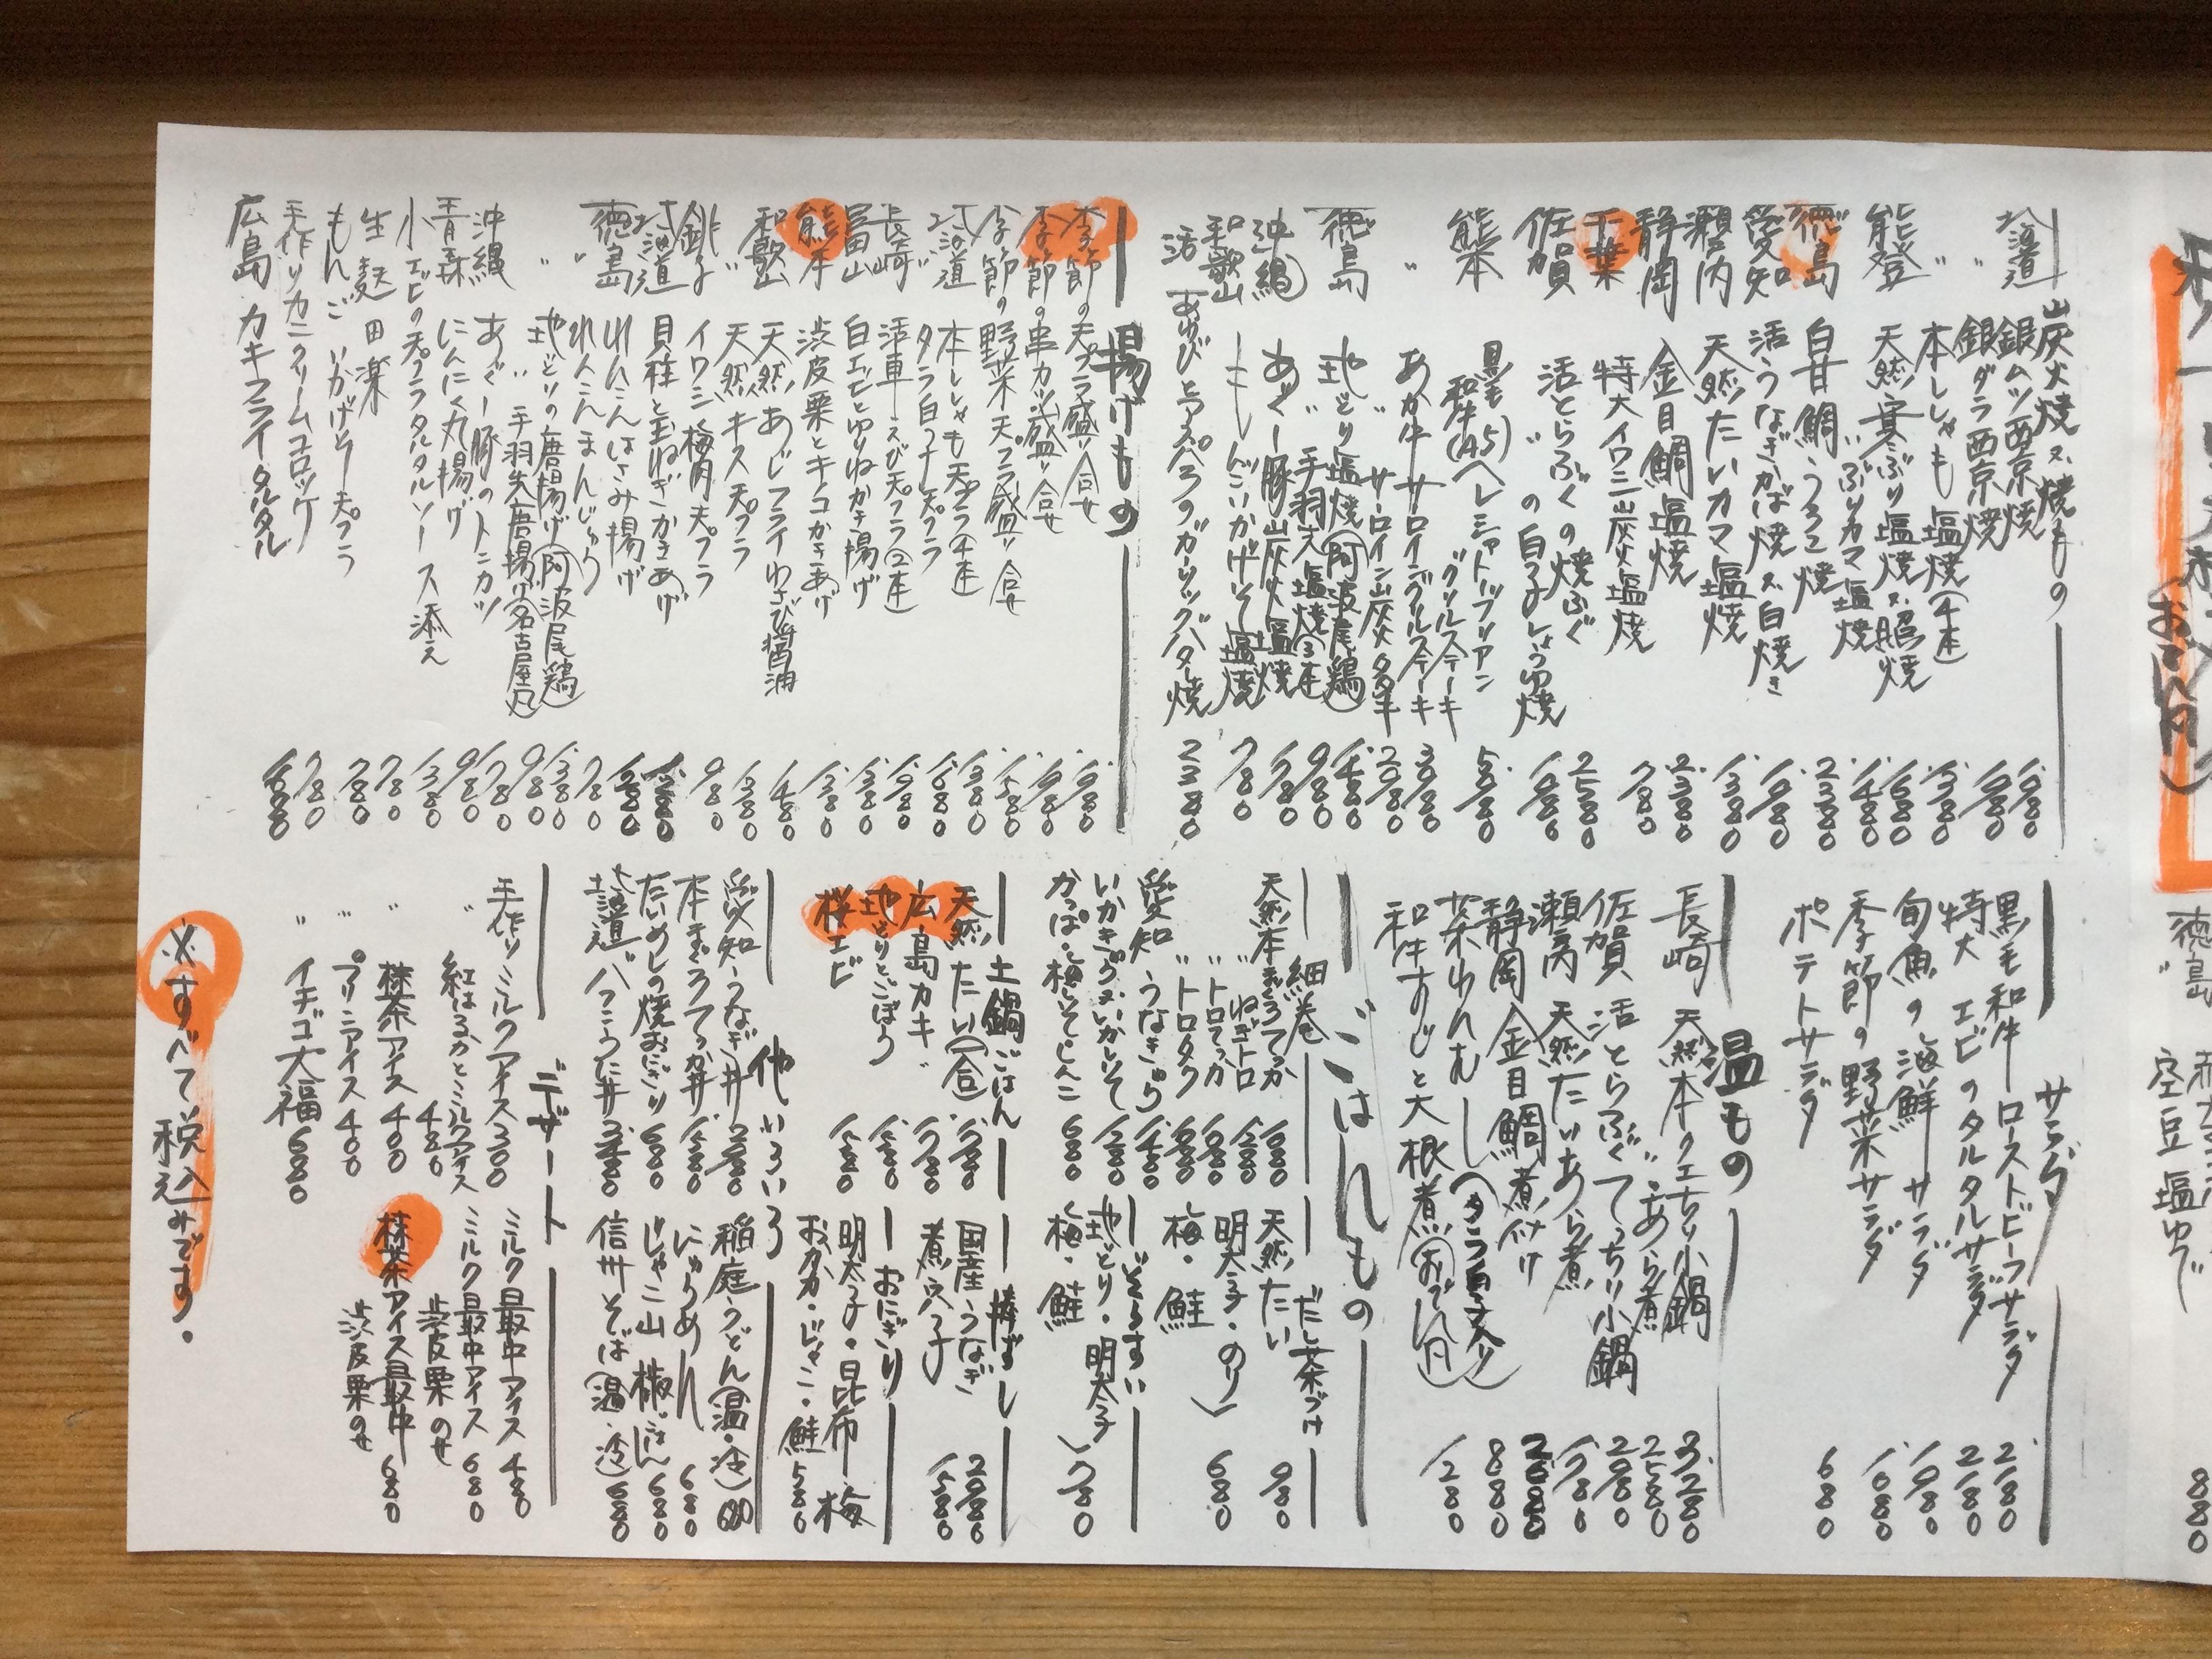 炭火焼又焼もの
北海道 銀ムツ西京焼 1,980
〃 銀ダラ西京焼 1,980
〃 本ししゃも塩焼(4本) 1,380
能登 天然寒ぶり塩焼又照焼 1,680
〃 ぶりカマ塩焼 1,480
徳島 白甘鯛うろこ焼 2,380
愛知 活うなぎかば焼又白焼き 1,980
瀬戸内 天然たいカマ塩焼 1,380
静岡 金目鯛塩焼 2,380
千葉 特大イワシ炭火塩焼 780
佐賀 活とらふぐの焼ふぐ 2,580
〃 の白子しょうゆ焼 1,980
熊本 黒毛和牛(A5)ヘレシャトーブリアン
グリルステーキ 5,880
〃 あか牛サーロイングリルステーキ 3,980
〃 サーロイン炭火タタキ 2,980
徳島 地どり塩焼(阿波尾鶏) 1,480
〃 手羽先塩焼(3本) 980
沖縄 あぐー豚炭火塩焼 1,780
和歌山 もんごいかげそ塩焼 780
活 あわびとアスパラのガーリックバター焼 2,380
揚げもの
季節の天プラ盛り合せ 1,980
季節の串カツ盛り合せ 1,980
季節の野菜天プラ盛り合せ 1,580
北海道 本ししゃも天プラ(4本) 1,380
〃 タラ白子天プラ 1,680
長崎 活車えび天プラ(2本) 1,980
富山 白エビとゆりねかき揚げ 1,380
熊本 渋皮栗とキノコかきあげ 1,380
和歌山 天然あじフライわさび醤油 1,480
〃 天然キス天プラ 1,380
銚子 イワシ梅肉天プラ 980
北海道 貝柱と玉ねぎかきあげ 1,280
徳島 れんこんはさみ揚げ
〃 れんこんまんじゅう 780
〃 地どりの唐揚げ(阿波尾鶏) 1,380
〃 手羽先唐揚げ(名古屋風) 980
沖縄 あぐー豚のトンカツ 1,780
青森 にんにく丸揚げ 980
小エビの天プラタルタルソース添え 1,380
生麩田楽 780
もんごいかげそ天プラ 780
手作りカニクリームコロッケ 780
広島 カキフライタルタル
サラダ
黒毛和牛ローストビーフサラダ 2,180
特大エビのタルタルサラダ 2,180
旬魚の海鮮サラダ 1,980
季節の野菜サラダ 1,080
ポテトサラダ 680
温もの
長崎 天然本クエちり小鍋 3,280
〃 あら煮 2,580
佐賀 活とらふぐてっちり小鍋 2,980
瀬戸内 天然たいあら煮 1,780
静岡 金目鯛煮付け
茶わんむし(タラ白子入り) 880
和牛すじと大根煮(おでん風) 1,280
ごはんもの
細巻
天然本まぐろてっか 1,080
〃 ねぎトロ 1,280
〃 トロてっか 1,680
〃 トロタク 1,680
愛知 うなきゅう 1,480
いかきゅう又いかしそ 1,280
かっぱ・梅しそ・しんこ 680
だし茶づけ
天然たい 980
明太子・のり
梅・鮭 680
ぞうすい
地どり・明太子
梅・鮭 780
土鍋ごはん
天然たい(一合) 1,780
広島カキ 1,780
地どりとごぼう 1,580
桜エビ 1,580
棒ずし
国産うなぎ 2,980
煮穴子 1,580
おにぎり
明太子・昆布・梅
おかか・じゃこ・鮭 580
他いろいろ
愛知うなぎ丼
本まぐろてっか丼 1,580
たいめしの焼おにぎり 680
北海道 いくらうに丼
稲庭うどん(温・冷)
にゅうめん 680
じゃこ山椒ごはん 680
信州そば(温・冷) 680
デザート
手作りミルクアイス 300
〃 紅はるかとミルクアイス 480
〃 抹茶アイス 400
〃 プリンアイス 400
〃 イチゴ大福 680
ミルク最中アイス 480
ミルク最中アイス
渋皮栗のせ 680
抹茶アイス最中
渋皮栗のせ 680
※すべて税込みです。
(おでん風)
徳島
空豆塩ゆで
880